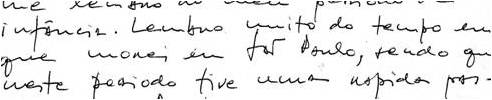 me lembro
infância. Lembro muito do tempo em
que morei em São Paulo, sendo que
neste período tive uma rápida pas-